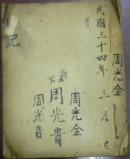 民國三十四年三月
周光金
周光金
周光貴
周光貴
日記